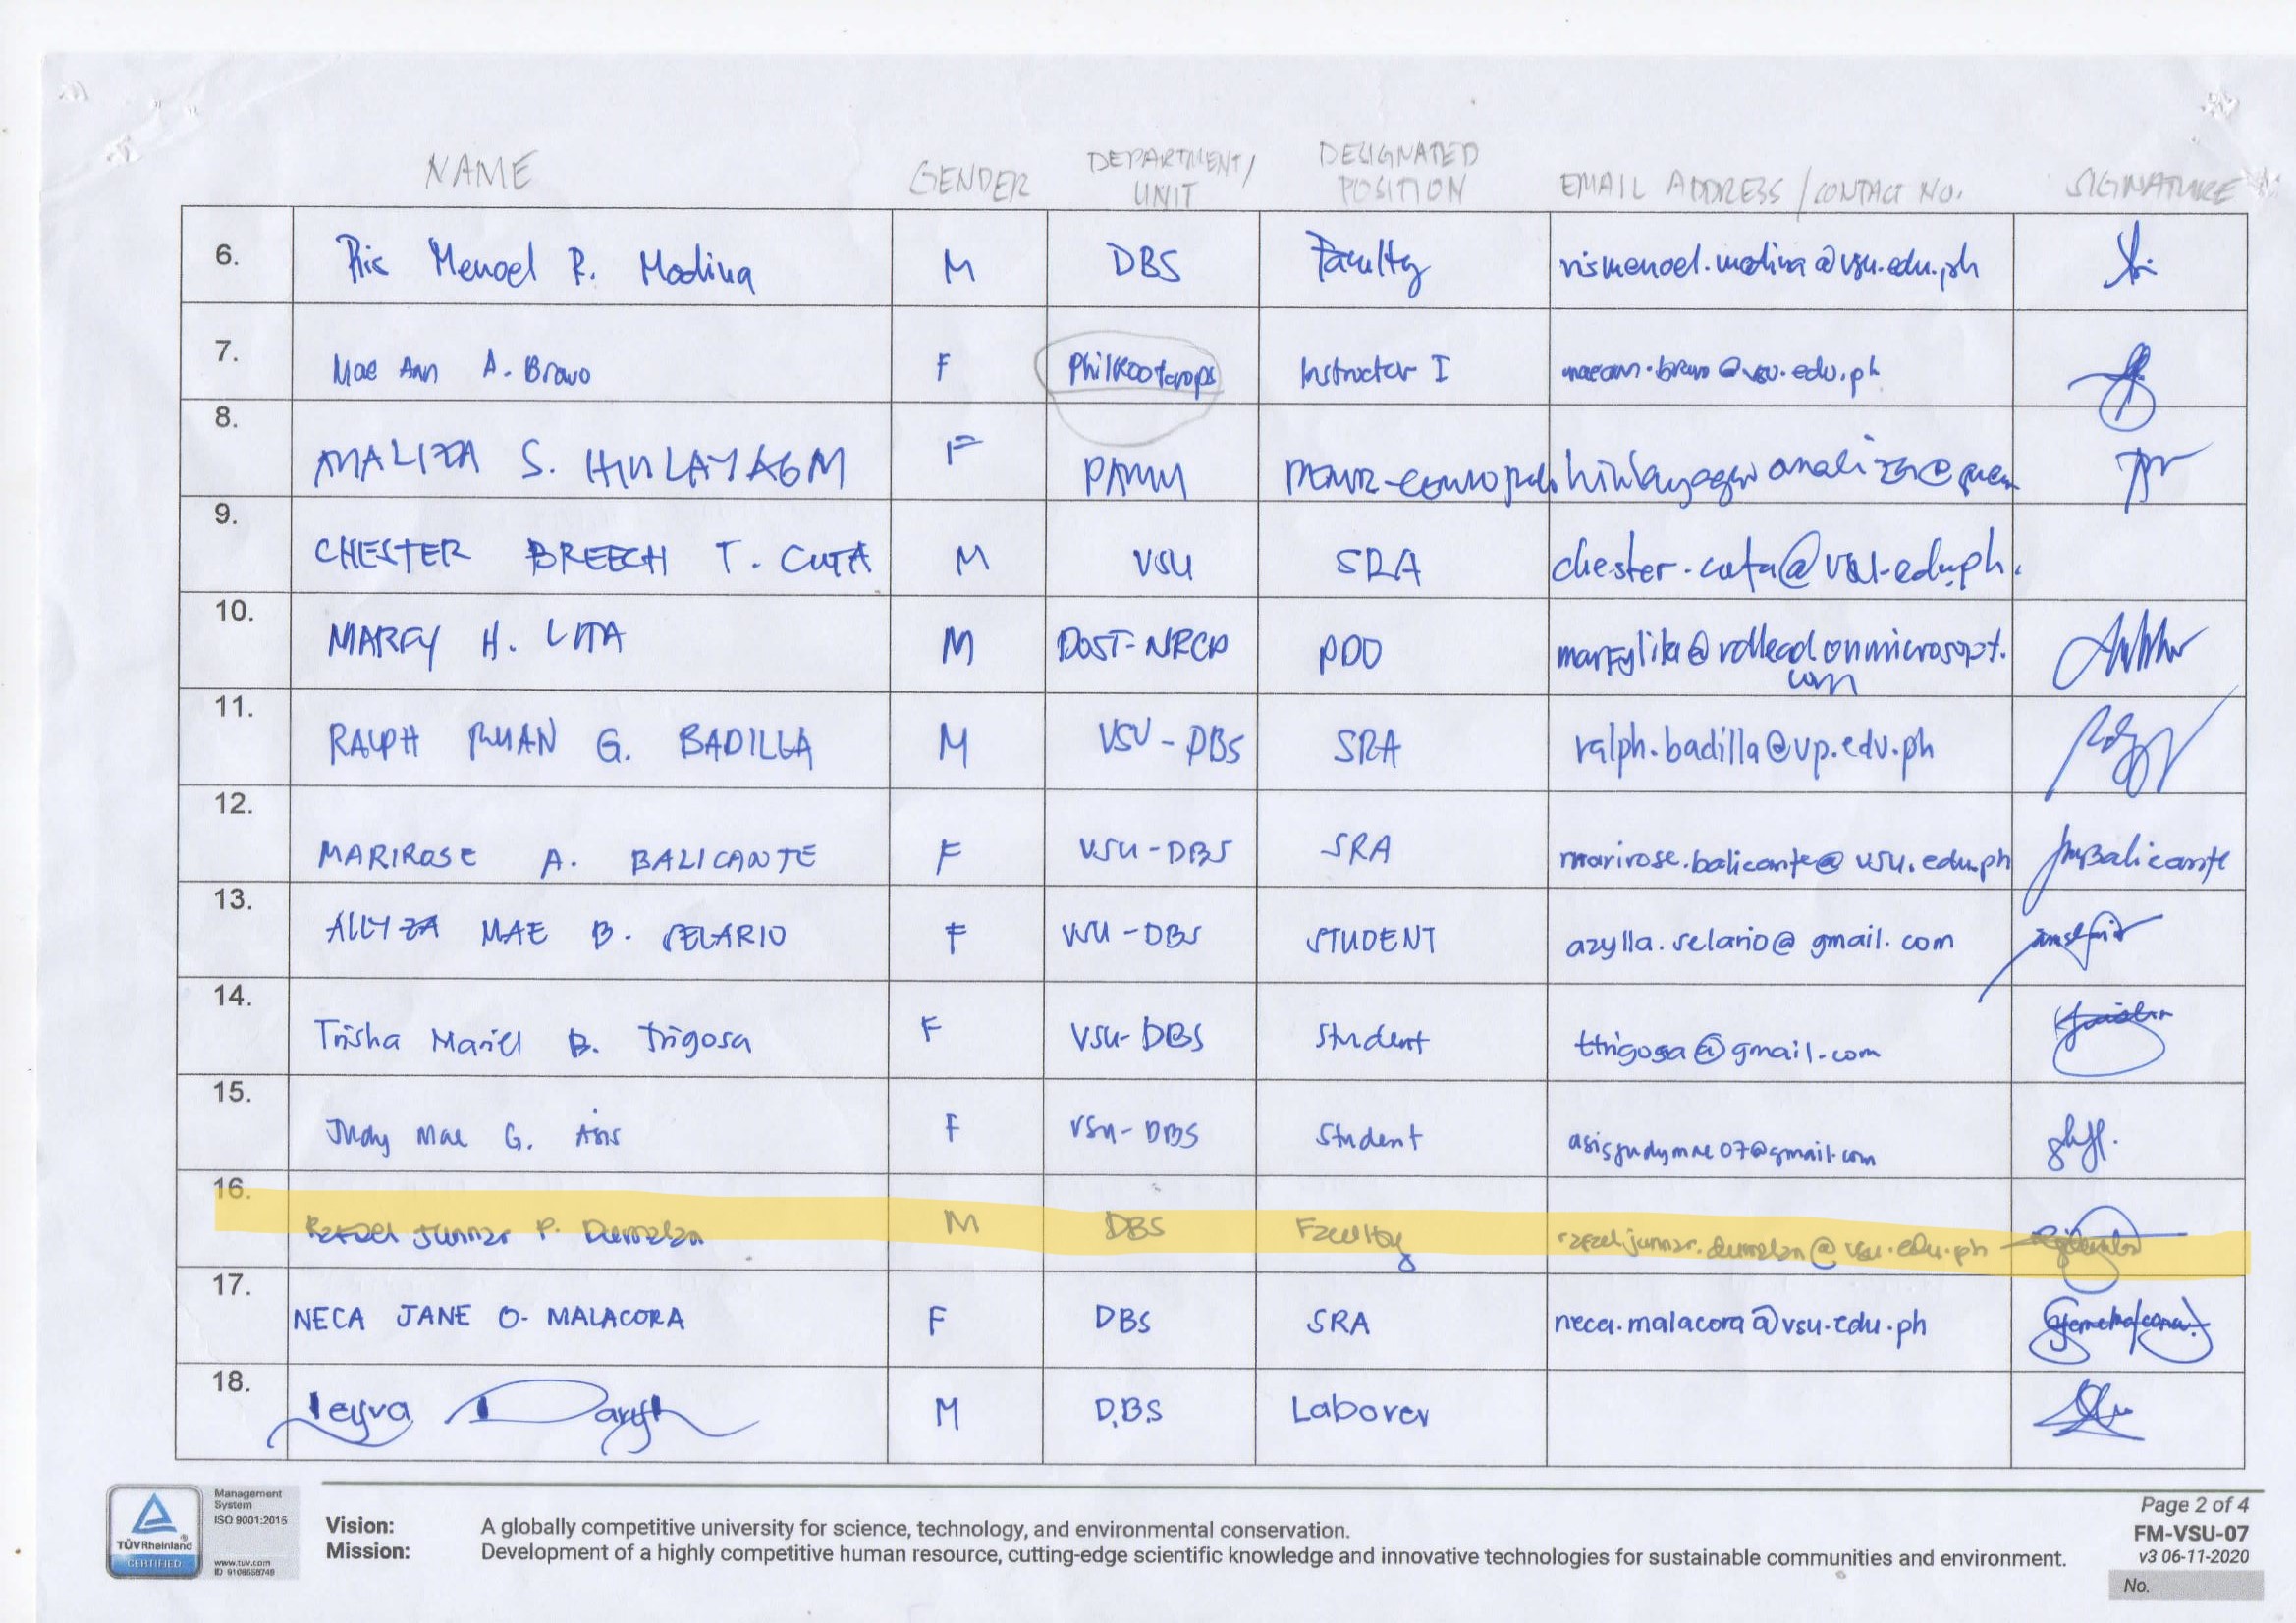 NAME GENDER DEPARTMENT/ UNIT DESIGNATED POSITION EMAIL ADDRESS / CONTACT NO. SIGNATURE
6. Ris Menoel R. Modina M DBS Faculty rismenoel.modina@vsu.edu.ph
7. Mae Ann A. Bravo F Philrootcrops Instructor I maeann.bravo@vsu.edu.ph
8. ANALIZA S. F
9. CHESTER BREECH T. CUTA M VSU SRA chester.cuta@vsu.edu.ph.
10. MARFY H. LITA M DOST-NRCP PDO
11. RALPH RUAN G. BADILLA M VSU-DBS SRA ralph.badilla@up.edu.ph
12. MARIROSE A. BALICANTE F VSU-DBS SRA marirose.balicante@vsu.edu.ph
13. ALLYZA MAE B. SELARIO F VSU-DBS STUDENT azylla.selario@gmail.com
14. Trisha Mariel B. Trigosa F VSU-DBS Student ttrigosa@gmail.com
15. Judy Mae G. Asis F VSU-DBS Student asisjudymae07@gmail.com
16. Rafael Junnar P. Dumalan M DBS Faculty rafael.junnar.dumalan@vsu.edu.ph
17. NECA JANE O. MALACORA F DBS SRA neca.malacora@vsu.edu.ph
18. Leyva Daryl M D.B.S Laborer
TÜVRheinland
CERTIFIED
Management
System
ISO 9001:2015
www.tuv.com
ID 9108658748
Vision: A globally competitive university for science, technology, and environmental conservation.
Mission: Development of a highly competitive human resource, cutting-edge scientific knowledge and innovative technologies for sustainable communities and environment.
Page 2 of 4
FM-VSU-07
v3 06-11-2020
No.